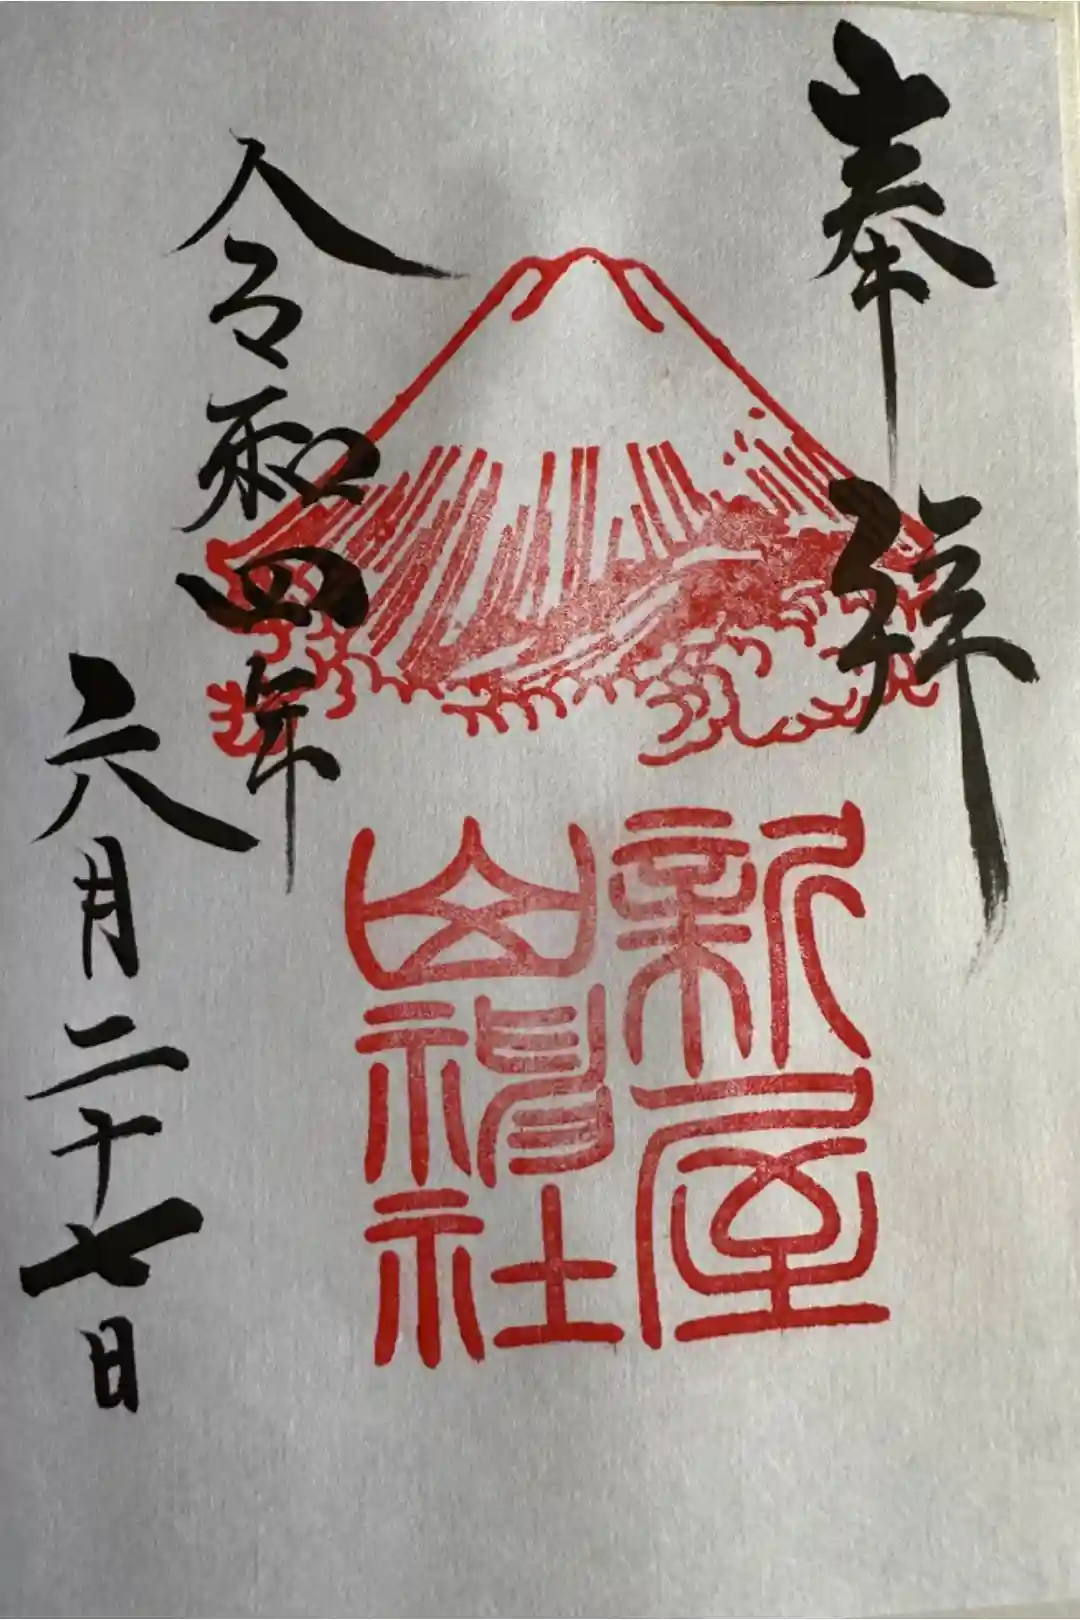 奉拝
新屋
山神社
令和四年
六月二十七日